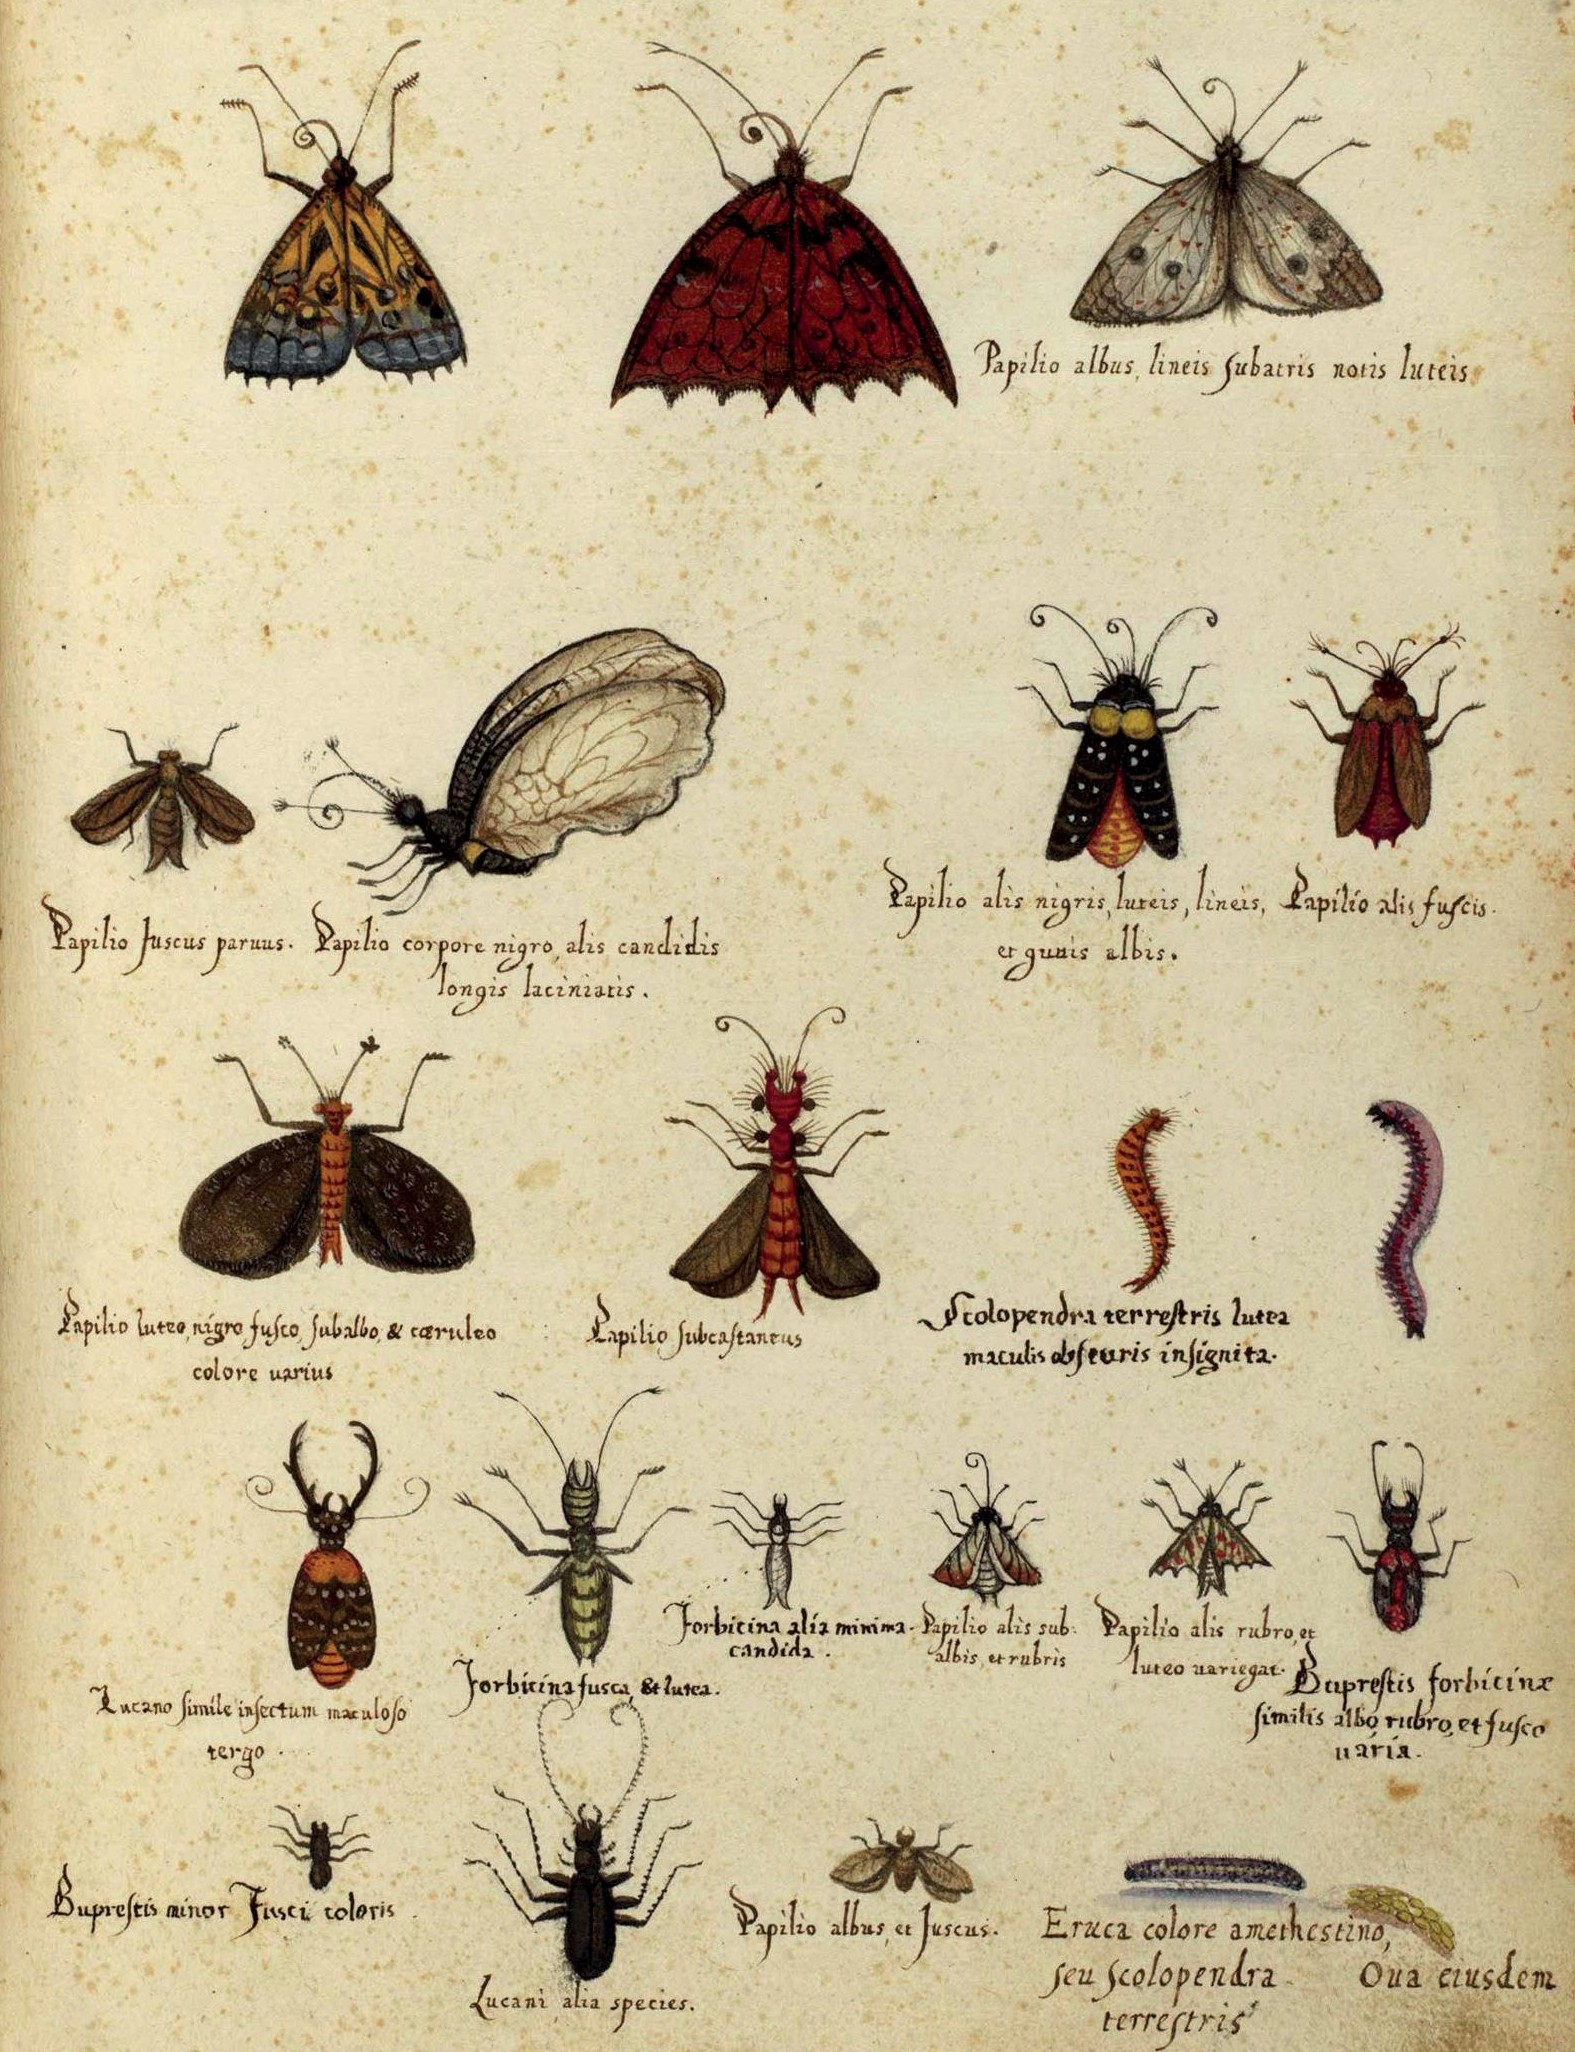 Papilio albus, lineis subatris notis luteis
Papilio fuscus paruus.
Papilio corpore nigro, alis candidis
longis laciniatis.
Papilio alis nigris, luteis, lineis,
et guttis albis.
Papilio alis fuscis.
Papilio luteo, nigro, fusco, subalbo, & cæruleo
colore uarius
Papilio subcastaneus
Scolopendra terrestris lutea
maculis obscuris insignita.
Lucano simile insectum maculoso
tergo.
Forbicina fusca, & lutea.
Forbicina alia minima
candida.
Papilio alis sub
albis, et rubris
Papilio alis rubro, et
luteo uariegat.
Buprestis forbicinæ
similis albo, rubro, et fusco
uaria.
Buprestis minor fusci coloris.
Lucani alia species.
Papilio albus, et fuscus.
Eruca colore amethestino,
seu scolopendra
terrestris
Oua eiusdem